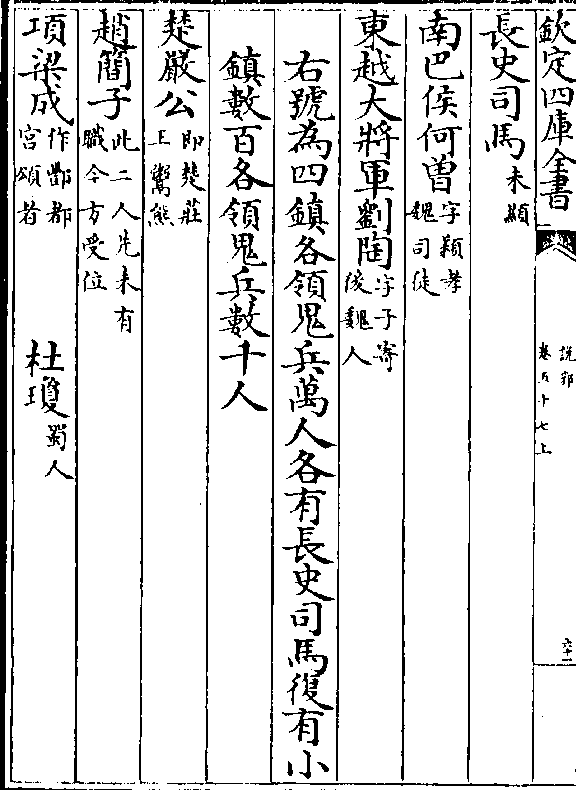 欽定四庫全書
說郛
卷五十七上
六十二
長史司馬未顯
南巴侯何曽字穎孝魏司徒
東越大將軍劉陶字子寄後魏人
右號為四鎮各領鬼兵萬人各有長史司馬復有小
鎮數百各領鬼兵數千人
楚嚴公即楚莊王鬻熊
趙簡子此二人先未有職今方受位
項梁成作酆都宫頌者 杜瓊蜀人